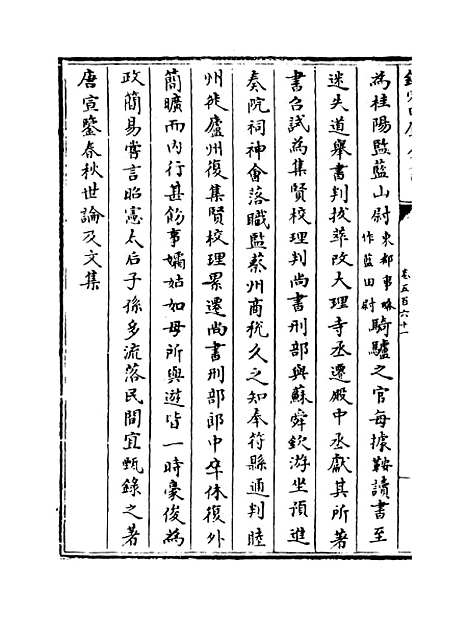 卷五百六十一
為桂陽監藍山尉東都事略作藍田尉騎驢之官每據鞍讀書至
迷失道舉書判拔萃改大理寺丞遷殿中丞獻其所著
書召試為集賢校理判尚書刑部與蘇舜欽游坐預進
奏院祠神會落職監蔡州商稅久之知奉符縣通判睦
州徙廬州復集賢校理累遷尚書刑部郎中卒休復外
簡曠而內行甚飭事孀姑如母所與遊皆一時豪俊為
政簡易嘗言昭憲太后子孫多流落民間宜甄錄之著
唐宣鑒春秋世論及文集